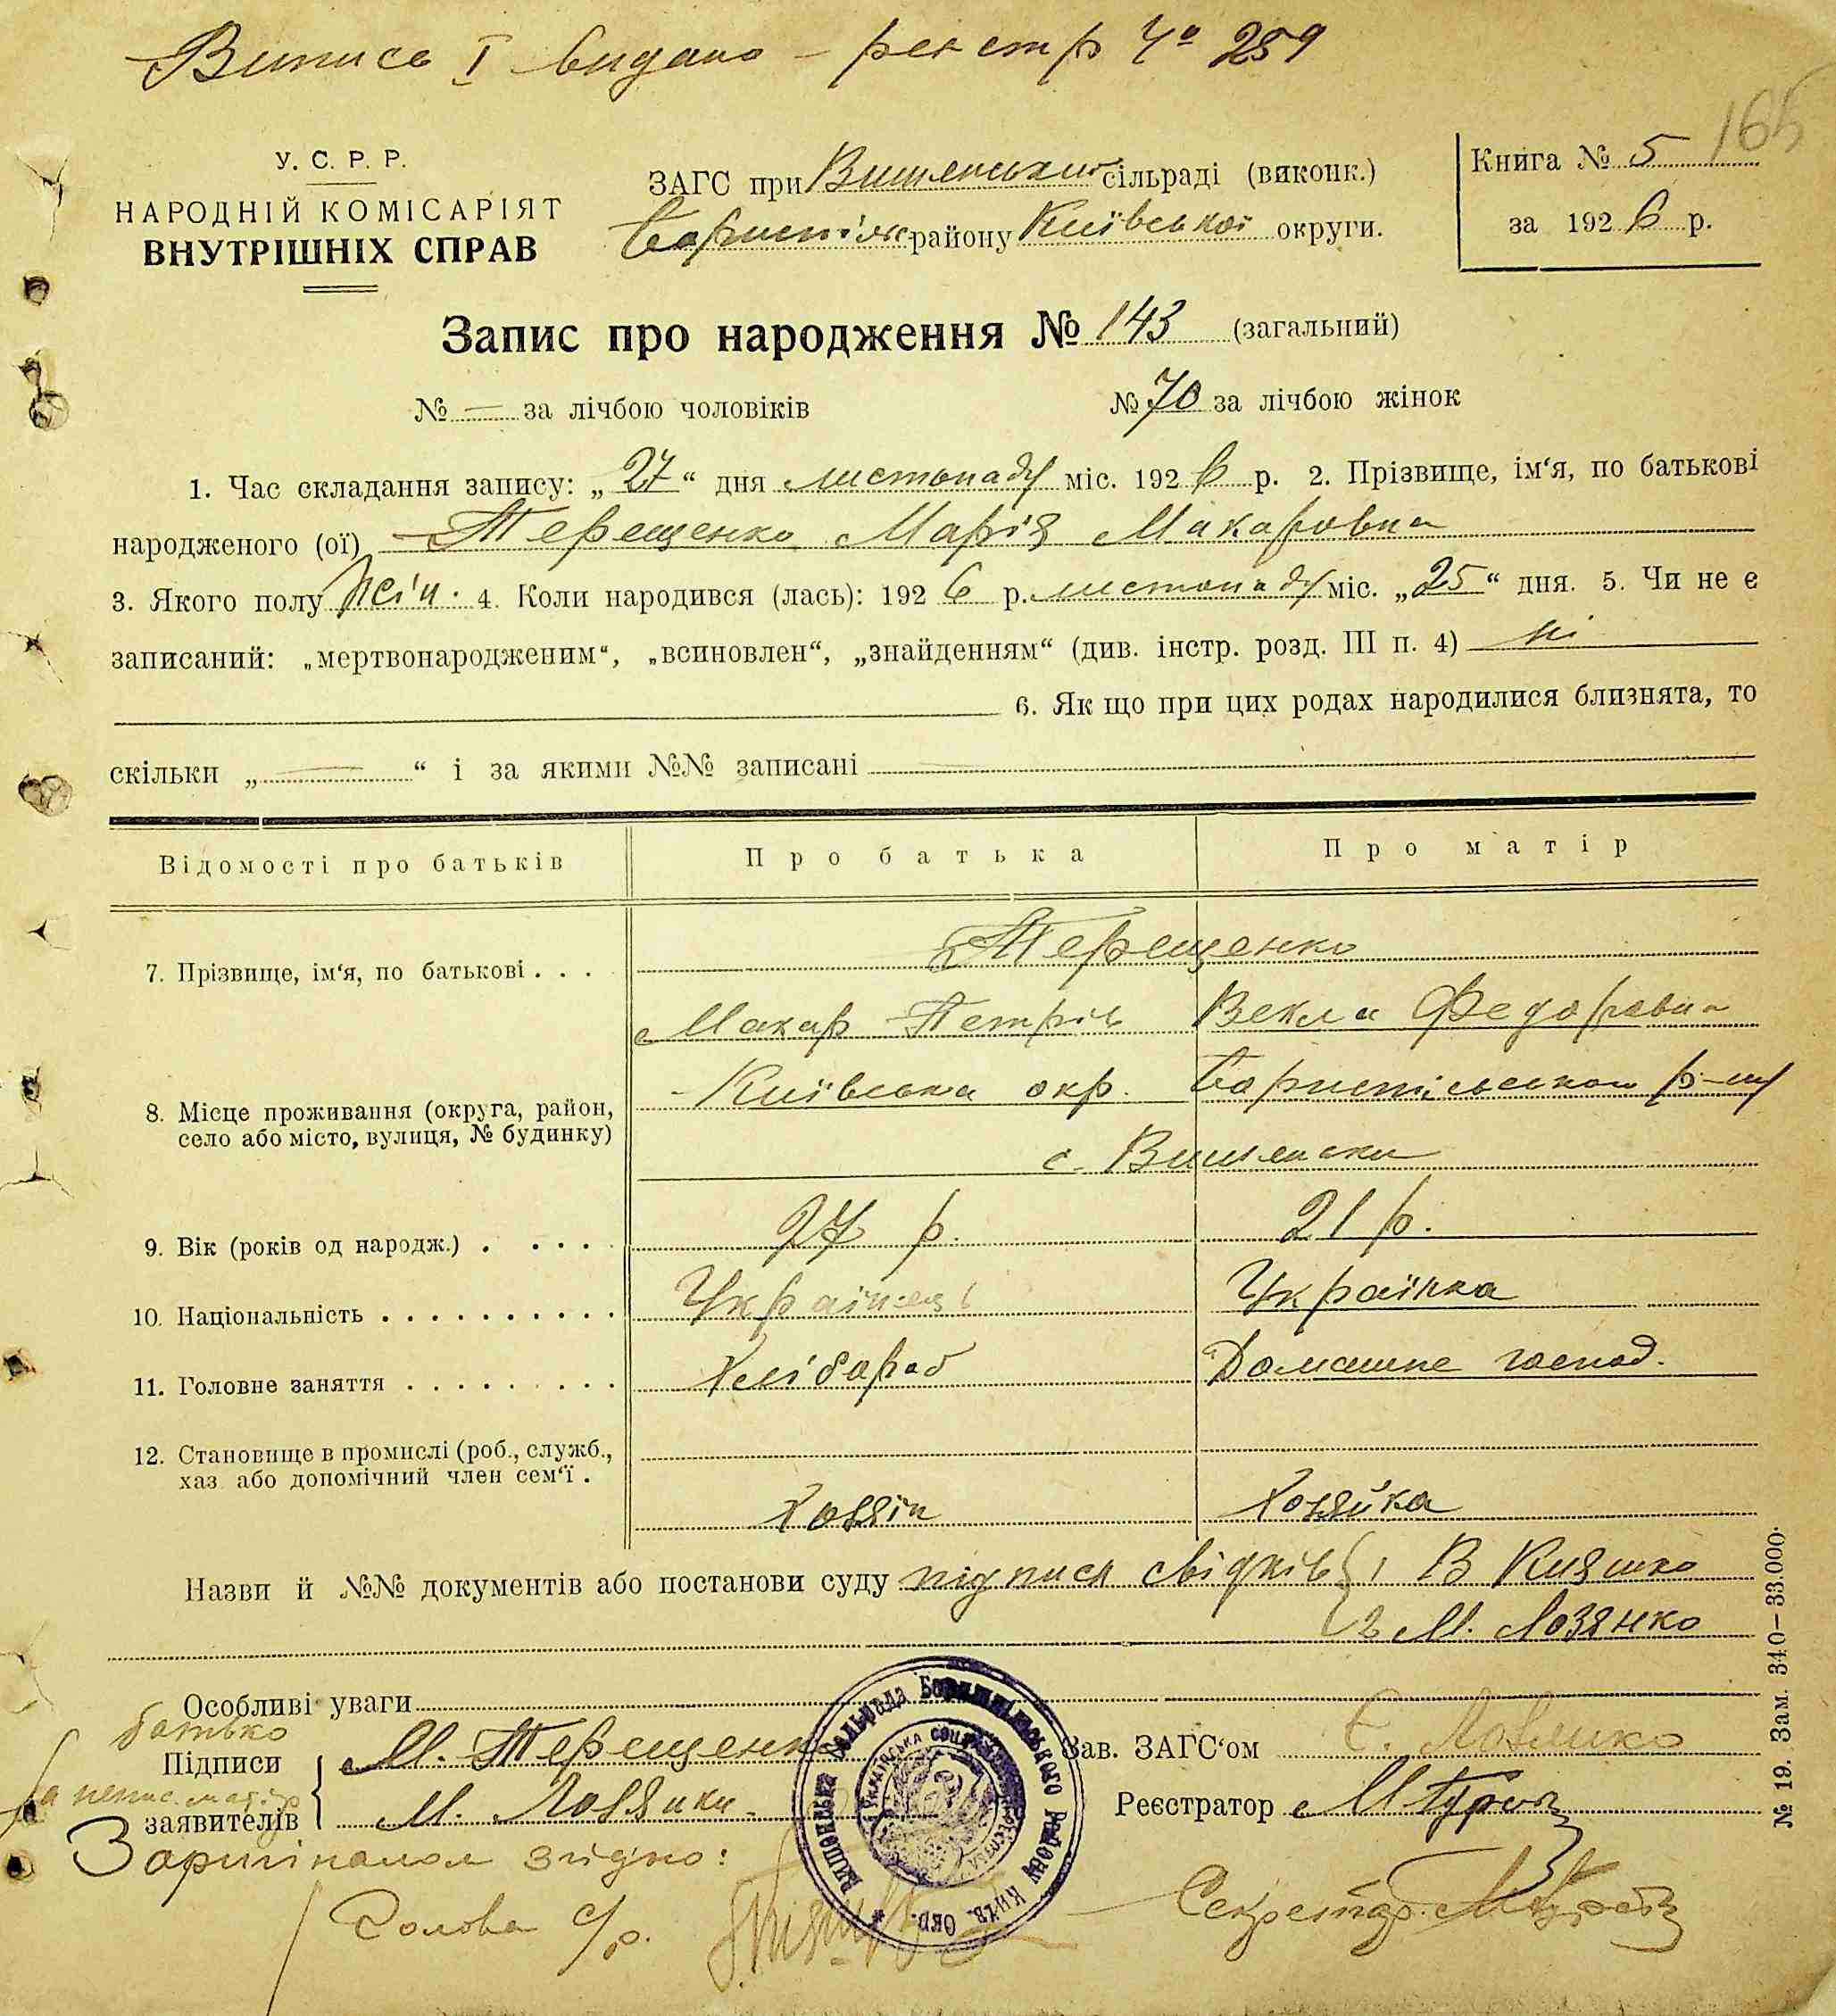 Випись I видано - реєстр Ч° 259
165
У. С. Р. Р.
НАРОДНІЙ КОМІСАРІЯТ
ВНУТРІШНІХ СПРАВ
ЗАГС при Вишеньській сільраді (виконк.)
Бориспільськ району Київської округи.
Книга № 5
за 1926 р.
Запис про народження № 143 (загальний)
№ — за лічбою чоловіків № 70 за лічбою жінок
1. Час складання запису: „27“ дня листопаду міс. 1926 р. 2. Прізвище, ім‘я, по батькові
народженого (ої) Терещенко Марія Макаровна
3. Якого полу жін. 4. Коли народився (лась): 1926 р. листопаду міс. „25“ дня. 5. Чи не є
записаний: „мертвонародженим“, „всиновлен“, „знайденням“ (див. інстр. розд. III п. 4) ні
6. Як що при цих родах народилися близнята, то
скільки „ — “ і за якими №№ записані
Відомості про батьків Про батька Про матір
7. Прізвище, ім‘я, по батькові . . . Терещенко
Макар Петрів Векла Федоровна
8. Місце проживання (округа, район, село або місто, вулиця, № будинку) Київська окр. Бориспільськом р-ну
с. Вишеньки
9. Вік (років од народж.) . . . . 27 р. 21 р.
10. Національність . . . . . . . . . . Українець Українка
11. Головне заняття . . . . . . . . . Хлібороб Домашнє господ.
12. Становище в промислі (роб., служб.,
хаз або допомічний член сем‘ї .
Хозяїн Хозяйка
Назви й №№ документів або постанови суду підписи свідків 1 В Кияшко
2 М. Лозянко
Особливі уваги
батько
Підписи М. Терещенко
заявителів М. Лозянко
Зав. ЗАГС‘ом
Реєстратор
Вишенська Сельрада Бориспільського Району Київ. Окр.
Українська Соц.
З оригіналом згідно:
Голова с/р.
Секретар
№ 19. Зам. 340–33.000.